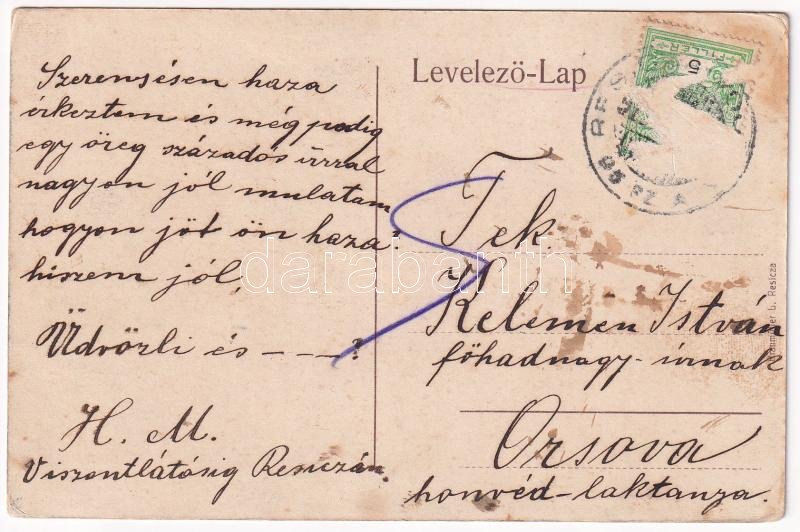 Levelező-Lap
FILLÉR
5
Szerensésen haza
érkeztem és még pedig
egy öreg százados úrral
nagyon jól mulatam
hogyon jöt ön haza?
hiszem jól,
Üdvözli és - - - ?
H. M.
Viszontlátásig Resiczán.
Tek.
Kelemen István
főhadnagy-úrnak
Orsova
honvéd-laktanza.
b. Resicza
darabanth